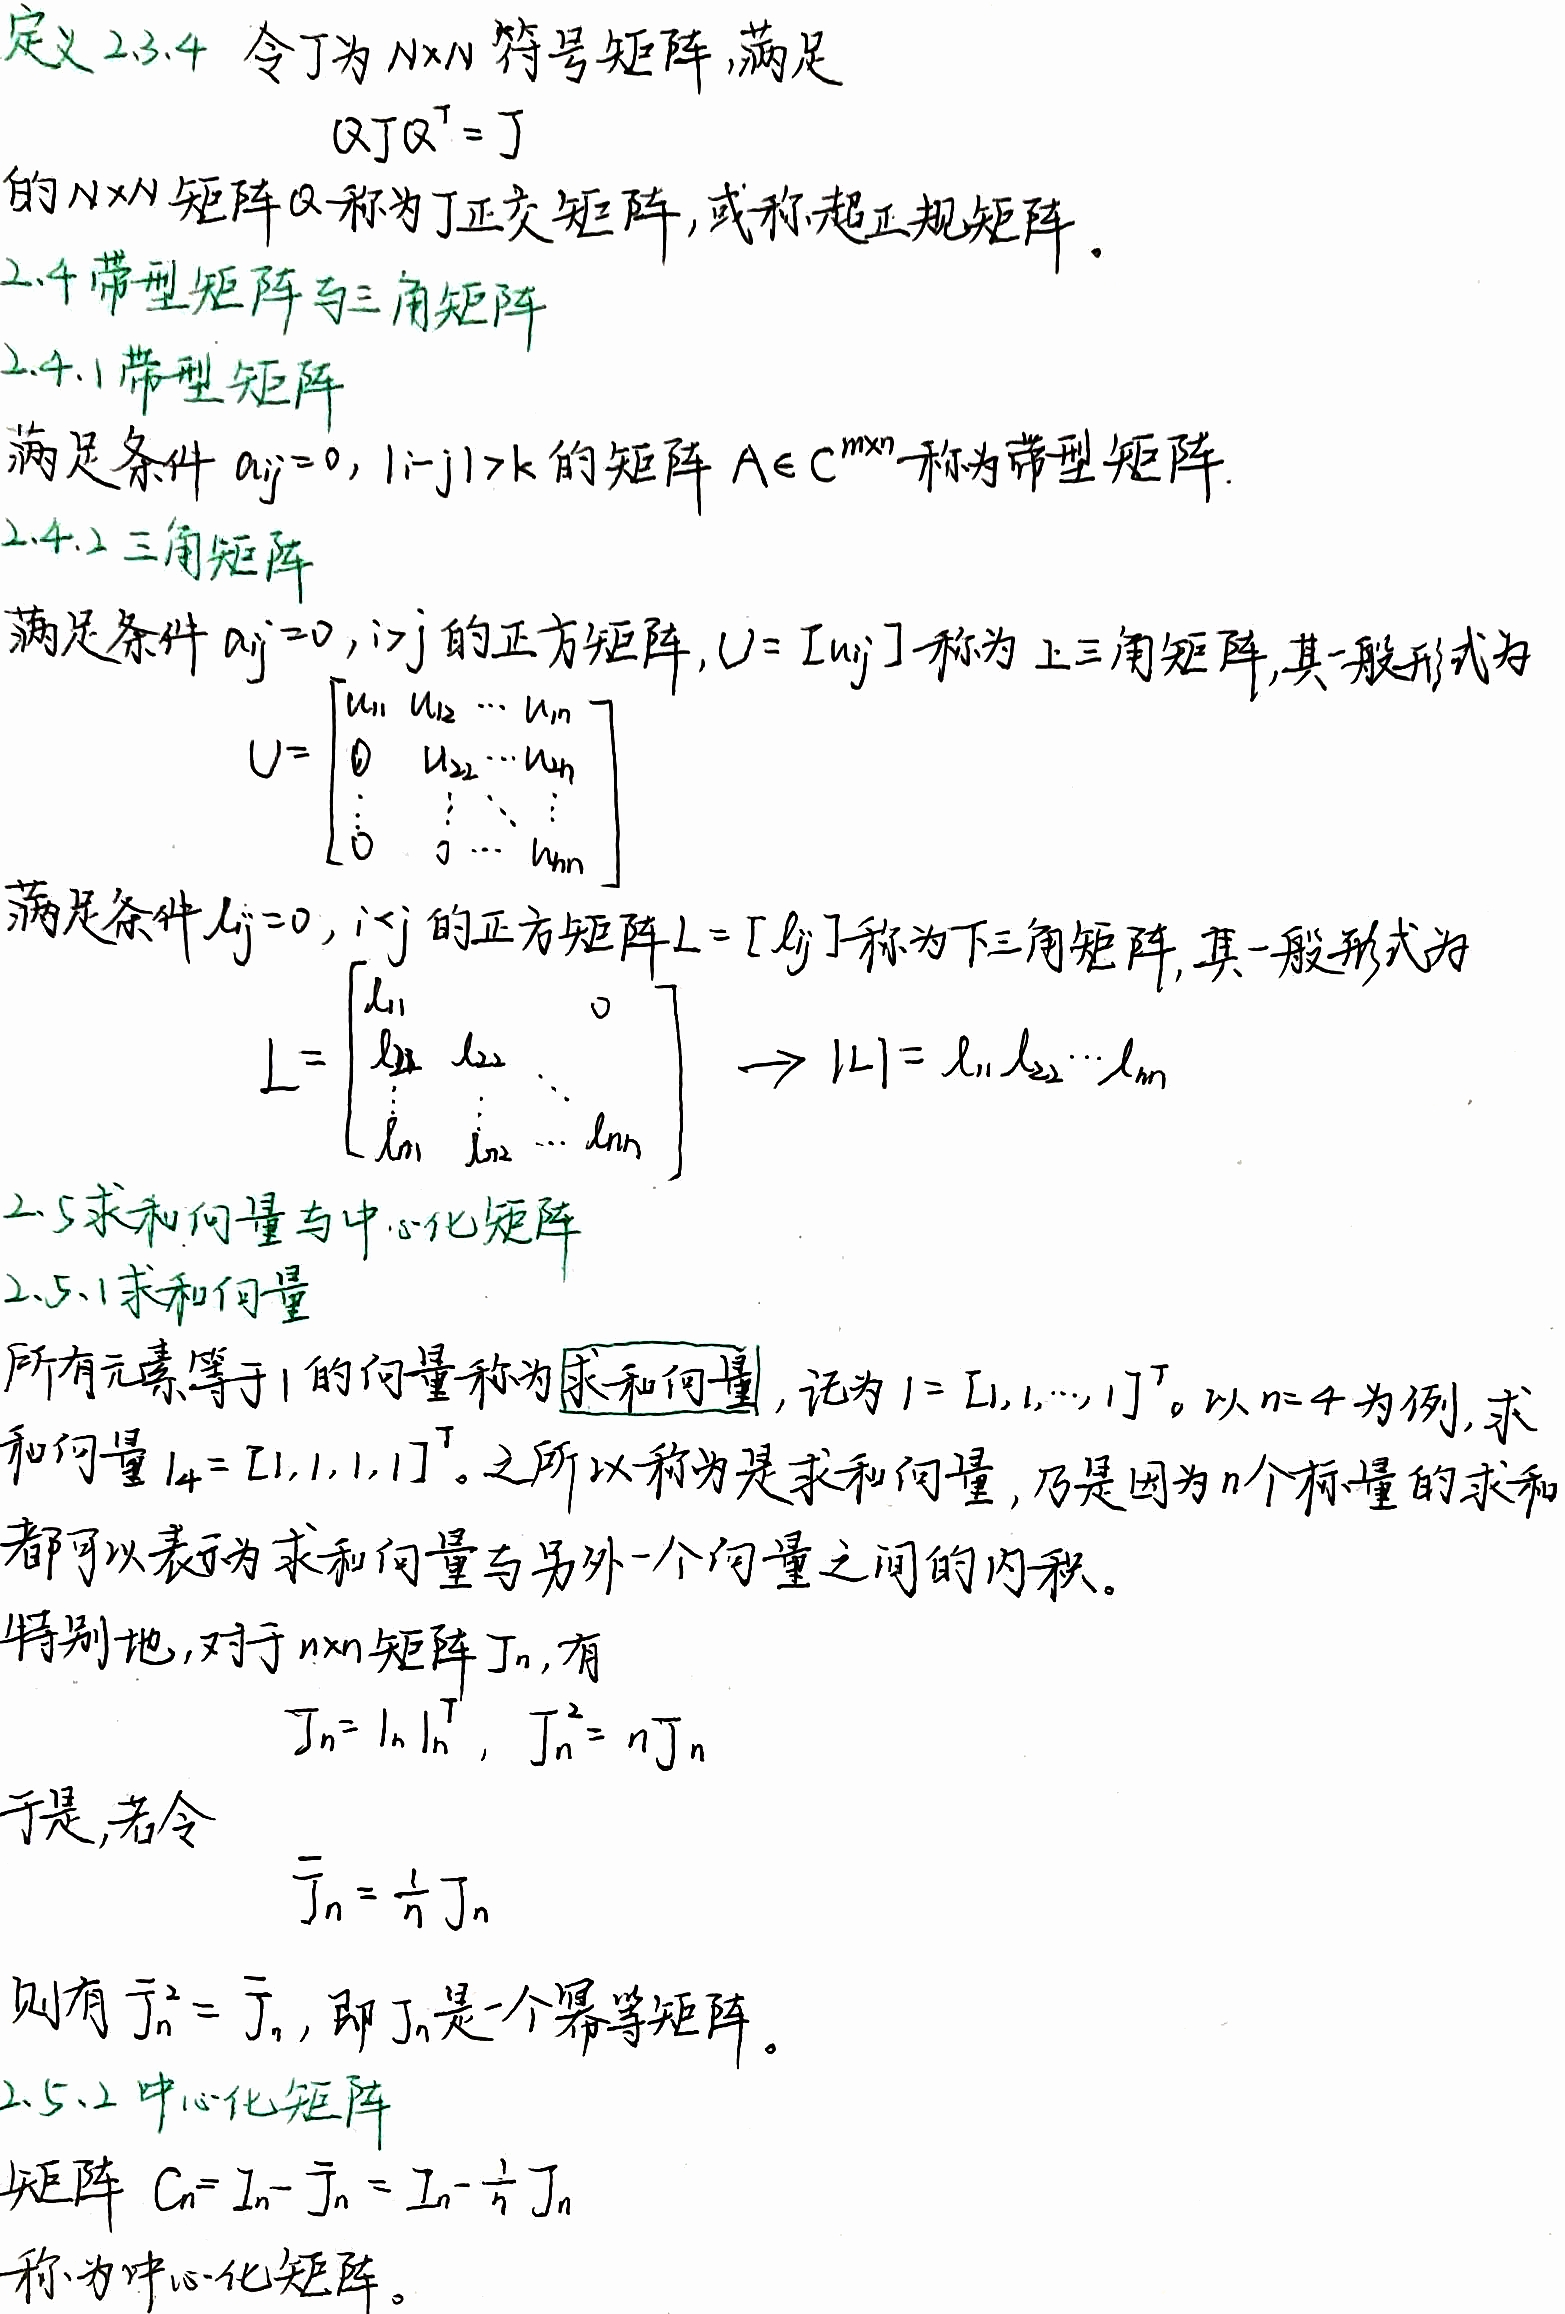 定义2.3.4 令J为N×N符号矩阵,满足
QJQ^T = J
的N×N矩阵Q称为J正交矩阵,或称超正规矩阵。
2.4带型矩阵与三角矩阵
2.4.1带型矩阵
满足条件 aij=0, |i-j|>k 的矩阵 A∈C^{m×n} 称为带型矩阵.
2.4.2三角矩阵
满足条件 aij=0, i>j 的正方矩阵, U=[uij] 称为上三角矩阵,其一般形式为
U = [u11 u12 ⋯ u1n
0 u22 ⋯ u2n
⋮ ⋮ ⋱ ⋮
0 0 ⋯ unn]
满足条件 lij=0, i<j 的正方矩阵L=[lij]称为下三角矩阵,其一般形式为
L = [l11 0
l21 l22
⋮ ⋮ ⋱
ln1 ln2 ⋯ lnn] → |L| = l11 l22 ⋯ lnn
2.5求和向量与中心化矩阵
2.5.1求和向量
所有元素等于1的向量称为求和向量,记为 1=[1,1,⋯,1]^T。以n=4为例,求
和向量 1_4=[1,1,1,1]^T。之所以称为是求和向量,乃是因为n个标量的求和
都可以表示为求和向量与另外一个向量之间的内积。
特别地,对于n×n矩阵Jn,有
Jn = 1n 1n^T, Jn^2 = nJn
于是,若令
J̄n = 1/n Jn
则有 J̄n^2 = J̄n, 即Jn是一个幂等矩阵。
2.5.2中心化矩阵
矩阵 Cn = In - J̄n = In - 1/n Jn
称为中心化矩阵。